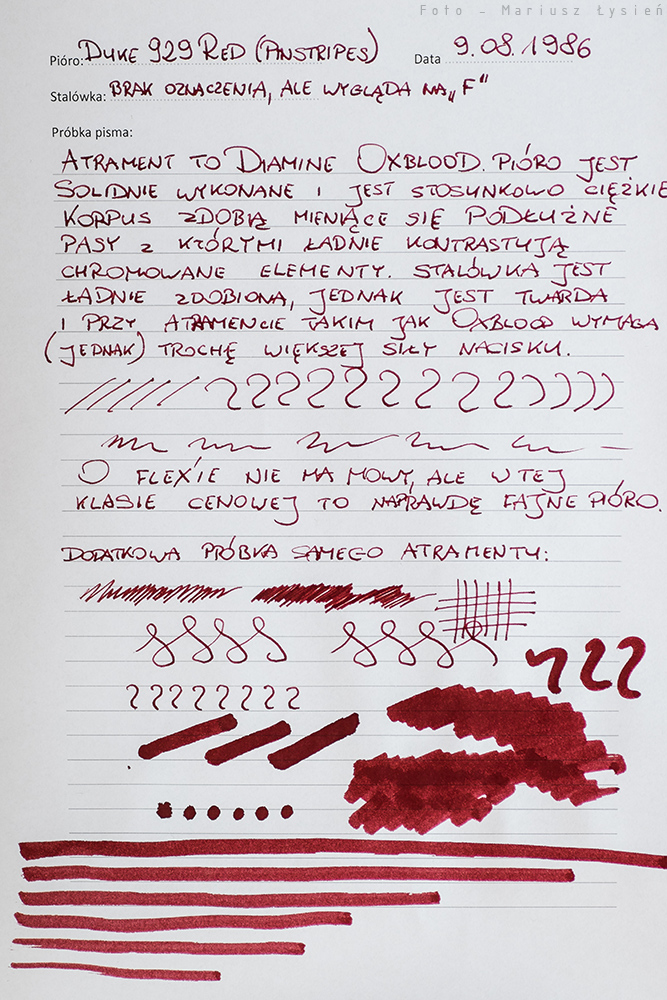 Foto - Mariusz Łysień
Pióro: Duke 929 Red (Pinstripes) Data 9.08.1986
Stalówka: BRAK OZNACZENIA, ALE WYGLĄDA NA „F"
Próbka pisma:
ATRAMENT TO DIAMINE OXBLOOD. PIÓRO JEST
SOLIDNIE WYKONANE I JEST STOSUNKOWO CIĘŻKIE
KORPUS ZDOBIĄ MIENIĄCE SIĘ PODŁUŻNE
PASY Z KTÓRYMI ŁADNIE KONTRASTUJĄ
CHROMOWANE ELEMENTY. STALÓWKA JEST
ŁADNIE ZDOBIONA, JEDNAK JEST TWARDA
I PRZY ATRAMENCIE TAKIM JAK OXBLOOD WYMAGA
(JEDNAK) TROCHĘ WIĘKSZEJ SIŁY NACISKU.
O FLEX'IE NIE MA MOWY, ALE W TEJ
KLASIE CENOWEJ TO NAPRAWDĘ FAJNE PIÓRO.
DODATKOWA PRÓBKA SAMEGO ATRAMENTU: